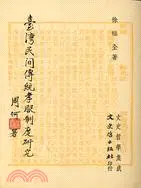 徐福全著
文史哲學集成
文史哲出版社印行
臺灣民間傳統孝服制度研究
周何署